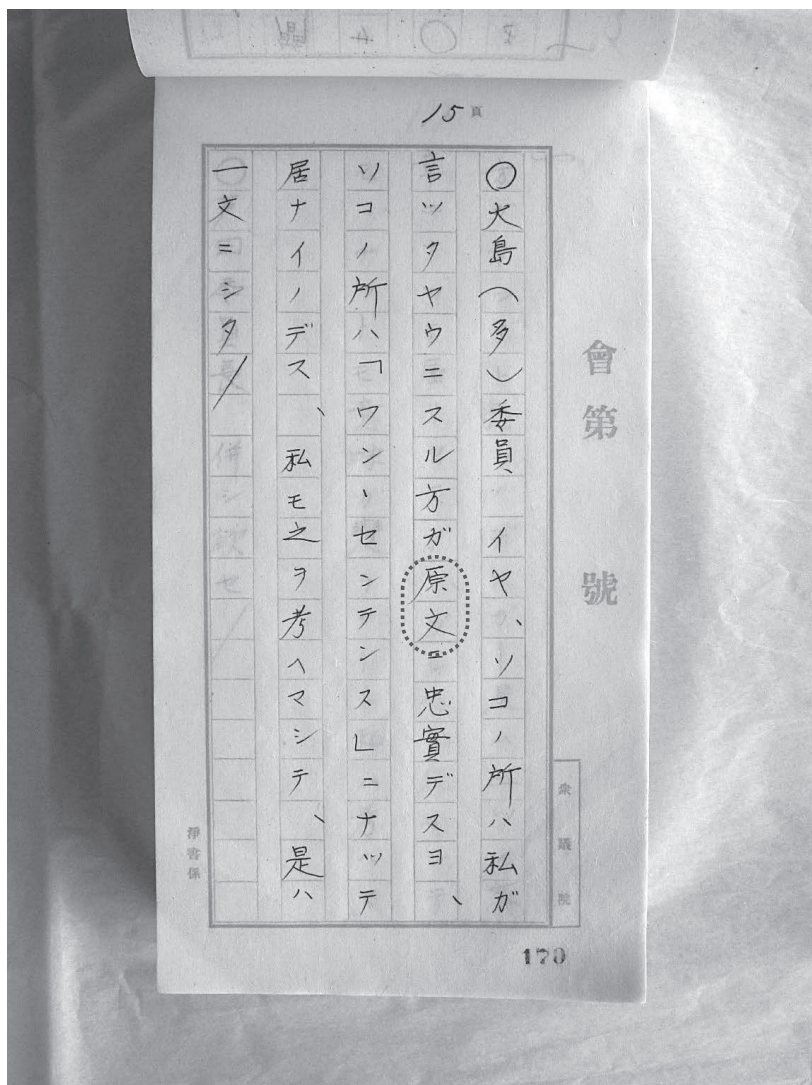 15頁
會第　號
衆議院
○大島(多)委員　イヤ、ソコノ所ハ私ガ
言ツタヤウニスル方ガ原文ニ忠實デスヨ、
ソコノ所ハ「ワン、センテンス」ニナッテ
居ナイノデス、私モ之ヲ考ヘマシテ、是ハ
一文ニシタ/
淨書係
170